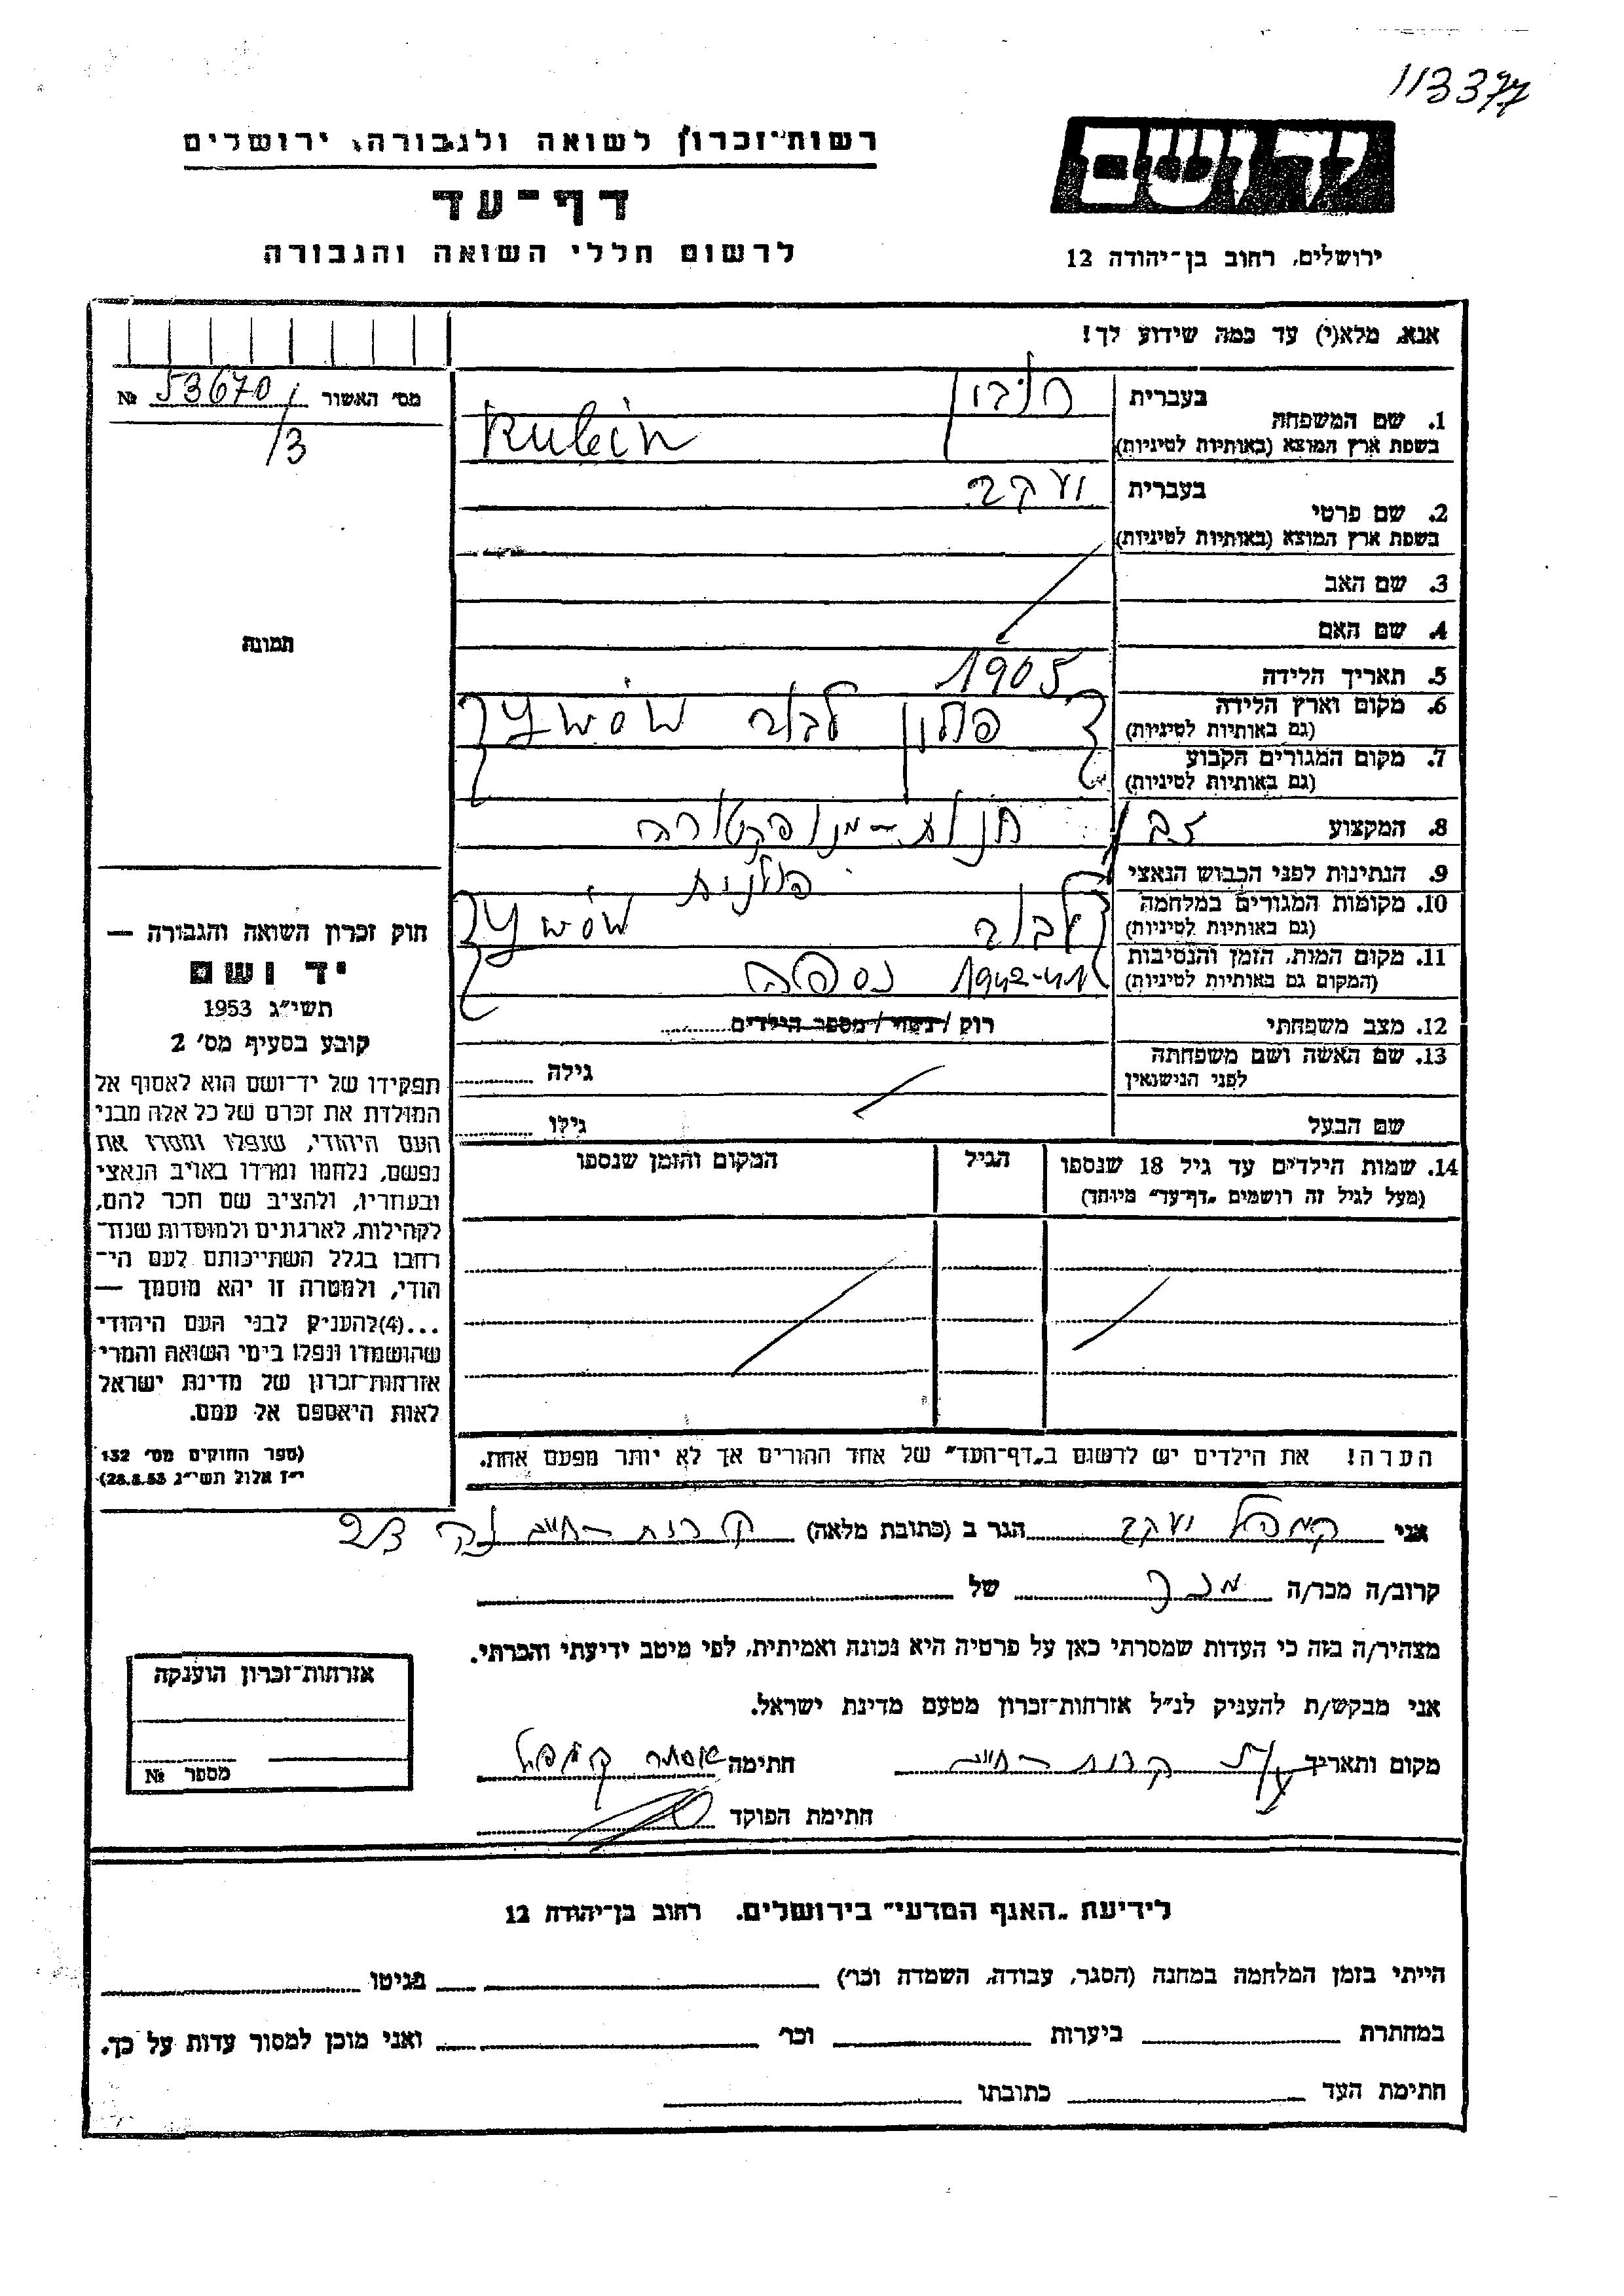 113377
יד ושם
רשות־זכרון לשואה ולגבורה, ירושלים
דף־עד
לרשום חללי השואה והגבורה
ירושלים, רחוב בן־יהודה 12
אנא, מלא(י) עד כמה שידוע לך!
מס' האשור 53670 №
/3
תמונה
1. שם המשפחה
בעברית רובין
בשפת ארץ המוצא (באותיות לטיניות) Rubin
2. שם פרטי
בעברית יעקב
בשפת ארץ המוצא (באותיות לטיניות)
3. שם האב
4. שם האם
5. תאריך הלידה 1905
6. מקום וארץ הלידה פולין לבוב
(גם באותיות לטיניות)
7. מקום המגורים הקבוע
(גם באותיות לטיניות)
8. המקצוע חנות־מנופקטורה
9. הנתינות לפני הכבוש הנאצי פולנית
10. מקומות המגורים במלחמה לבוב
(גם באותיות לטיניות)
11. מקום המות, הזמן והנסיבות 1942-41 נספה
(המקום גם באותיות לטיניות)
12. מצב משפחתי רווק / נשוי / מספר הילדים
13. שם האשה ושם משפחתה
לפני הנישואין
גילה
שם הבעל גילו
14. שמות הילדים עד גיל 18 שנספו הגיל המקום והזמן שנספו
(מעל לגיל זה רושמים „דף־עד" מיוחד)
הערה! את הילדים יש לרשום ב„דף־העד" של אחד ההורים אך לא יותר מפעם אחת.
חוק זכרון השואה והגבורה —
יד ושם
תשי"ג 1953
קובע בסעיף מס' 2
תפקידו של יד־ושם הוא לאסוף אל
המולדת את זכרם של כל אלה מבני
העם היהודי, שנפלו ומסרו את
נפשם, נלחמו ומרדו באויב הנאצי
ובעוזריו, ולהציב שם וזכר להם,
לקהילות, לארגונים ולמוסדות שנח־
רבו בגלל השתייכותם לעם הי־
הודי, ולמטרה זו יהא מוסמך —
...(4) להעניק לבני העם היהודי
שהושמדו ונפלו בימי השואה והמרי
אזרחות־זכרון של מדינת ישראל
לאות היאספם אל עמם.
(ספר החוקים מס' 132
י"ז אלול תשי"ג 28.8.53)
אני יעקב הגר ב (כתובת מלאה) קרית־חיים
קרוב/ה מכר/ה מכר של
מצהיר/ה בזה כי העדות שמסרתי כאן על פרטיה היא נכונה ואמיתית, לפי מיטב ידיעתי והכרתי.
אני מבקש/ת להעניק לנ"ל אזרחות־זכרון מטעם מדינת ישראל.
מקום ותאריך קרית־חיים חתימה
חתימת הפוקד
אזרחות־זכרון הוענקה
מספר №
לידיעת „האגף המדעי" בירושלים. רחוב בן־יהודה 12
הייתי בזמן המלחמה במחנה (הסגר, עבודה, השמדה וכו') בגיטו
במחתרת ביערות וכו' ואני מוכן למסור עדות על כך.
חתימת העד כתובתו